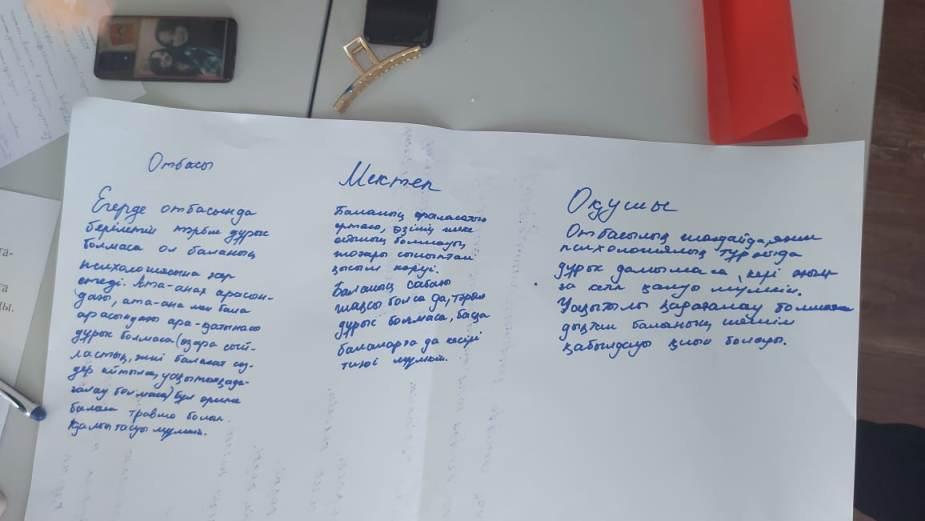 Отбасы
Егерде отбасында
берілетін тәрбие дұрыс
болмаса ол баланың
психологиясына зар
етеді. Ата-анах арасын-
дағы, ата-ана мен бала
арасындағы ара-қатынасы
дұрыс болмаса (өзара сый-
ластық, және балаға сө-
дер айтылса, уақытында қада-
ғалау болмаса) бұл әрине
балаға травма болып
қалыптасуы мүмкін.
Мектеп
Баланың араласатын
ортасы, өзінің
ойының болмауы,
жоғары сыныптан
қысым көруі.
Баланың сабағы
жақсы болса да, тәрбие
дұрыс болмаса, басқа
балаларға да кесірі
тиюі мүмкін.
Оқушы
Отбасылық жағдайда, яғни
психологиялық тұрғыда
дұрыс дамымаса, кері
ға әкеп қалуы мүмкін.
Уақытылы қадағалау болмаған
дықтан баланың шешім
қабылдауы қиын болады.